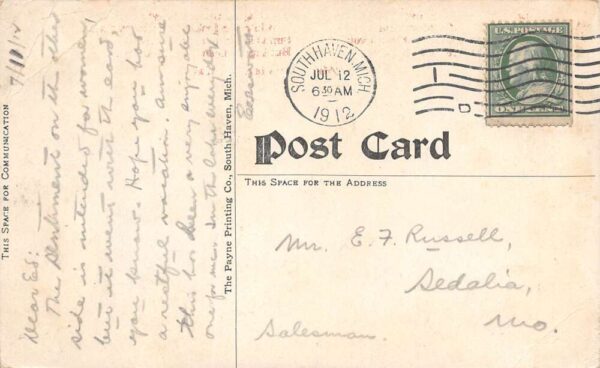 THIS SPACE FOR COMMUNICATION
7/11/12
Dear Ed:
The sentiment on the other
side is intended for wifey
but it went with the card,
you know. Hope you has
a restful vacation. Am sure
this has been a very enjoyable
one for me. In the lake everyday
The Payne Printing Co., South Haven, Mich.
SOUTH HAVEN, MICH.
JUL 12
6 30 AM
1912
D
U.S. POSTAGE
ONE CENT
Post Card
THIS SPACE FOR THE ADDRESS
Mr. E. F. Russell,
Sedalia,
Mo.
Salesman.